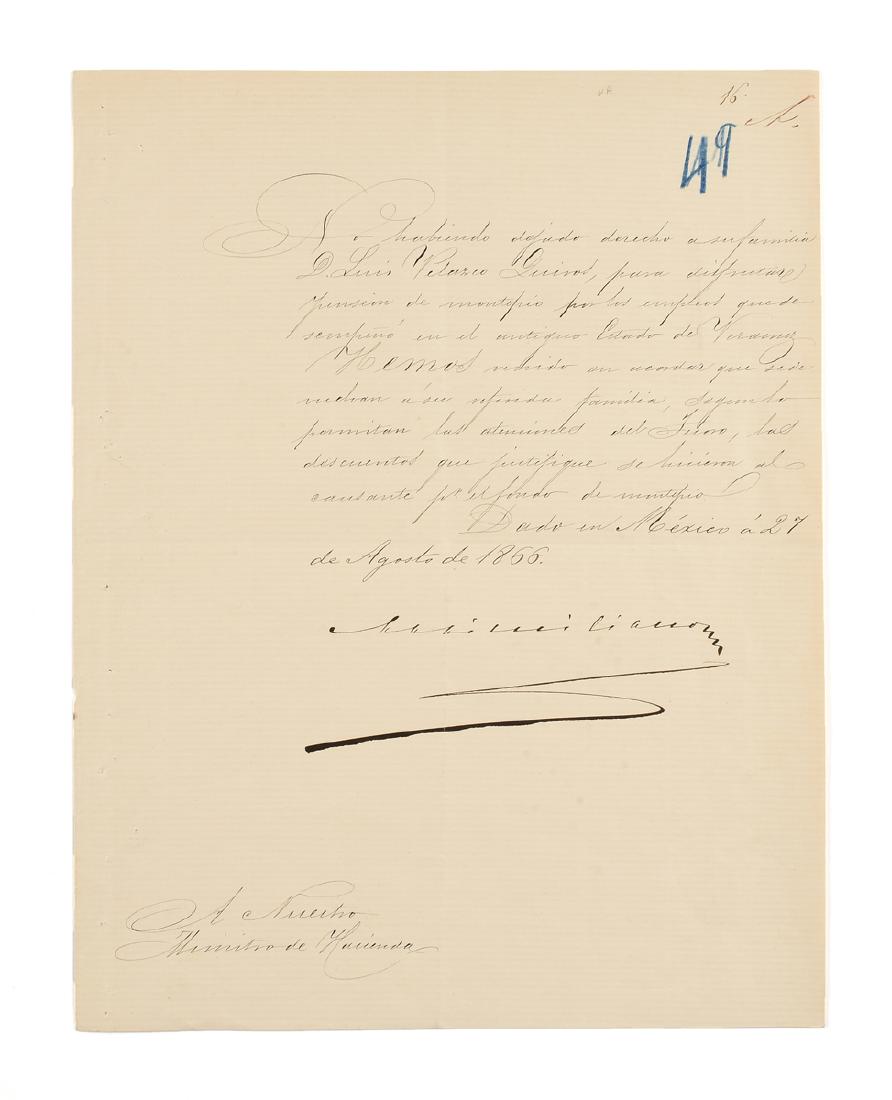 16.
A.
49
No habiendo dejado derecho a su familia
D. Luis Velazco Quiros, para disfrutar
pension de montepio por los empleos que de-
sempeñó en el antiguo Estado de Veracruz
Hemos venido en acordar que se de-
vuelvan á su referida familia, segun lo
permitan las atenciones del Erario, los
descuentos que justifique se hicieron al
causante pr. el fondo de montepio
Dado en México á 27
de Agosto de 1866.
Maximiliano
A Nuestro
Ministro de Hacienda